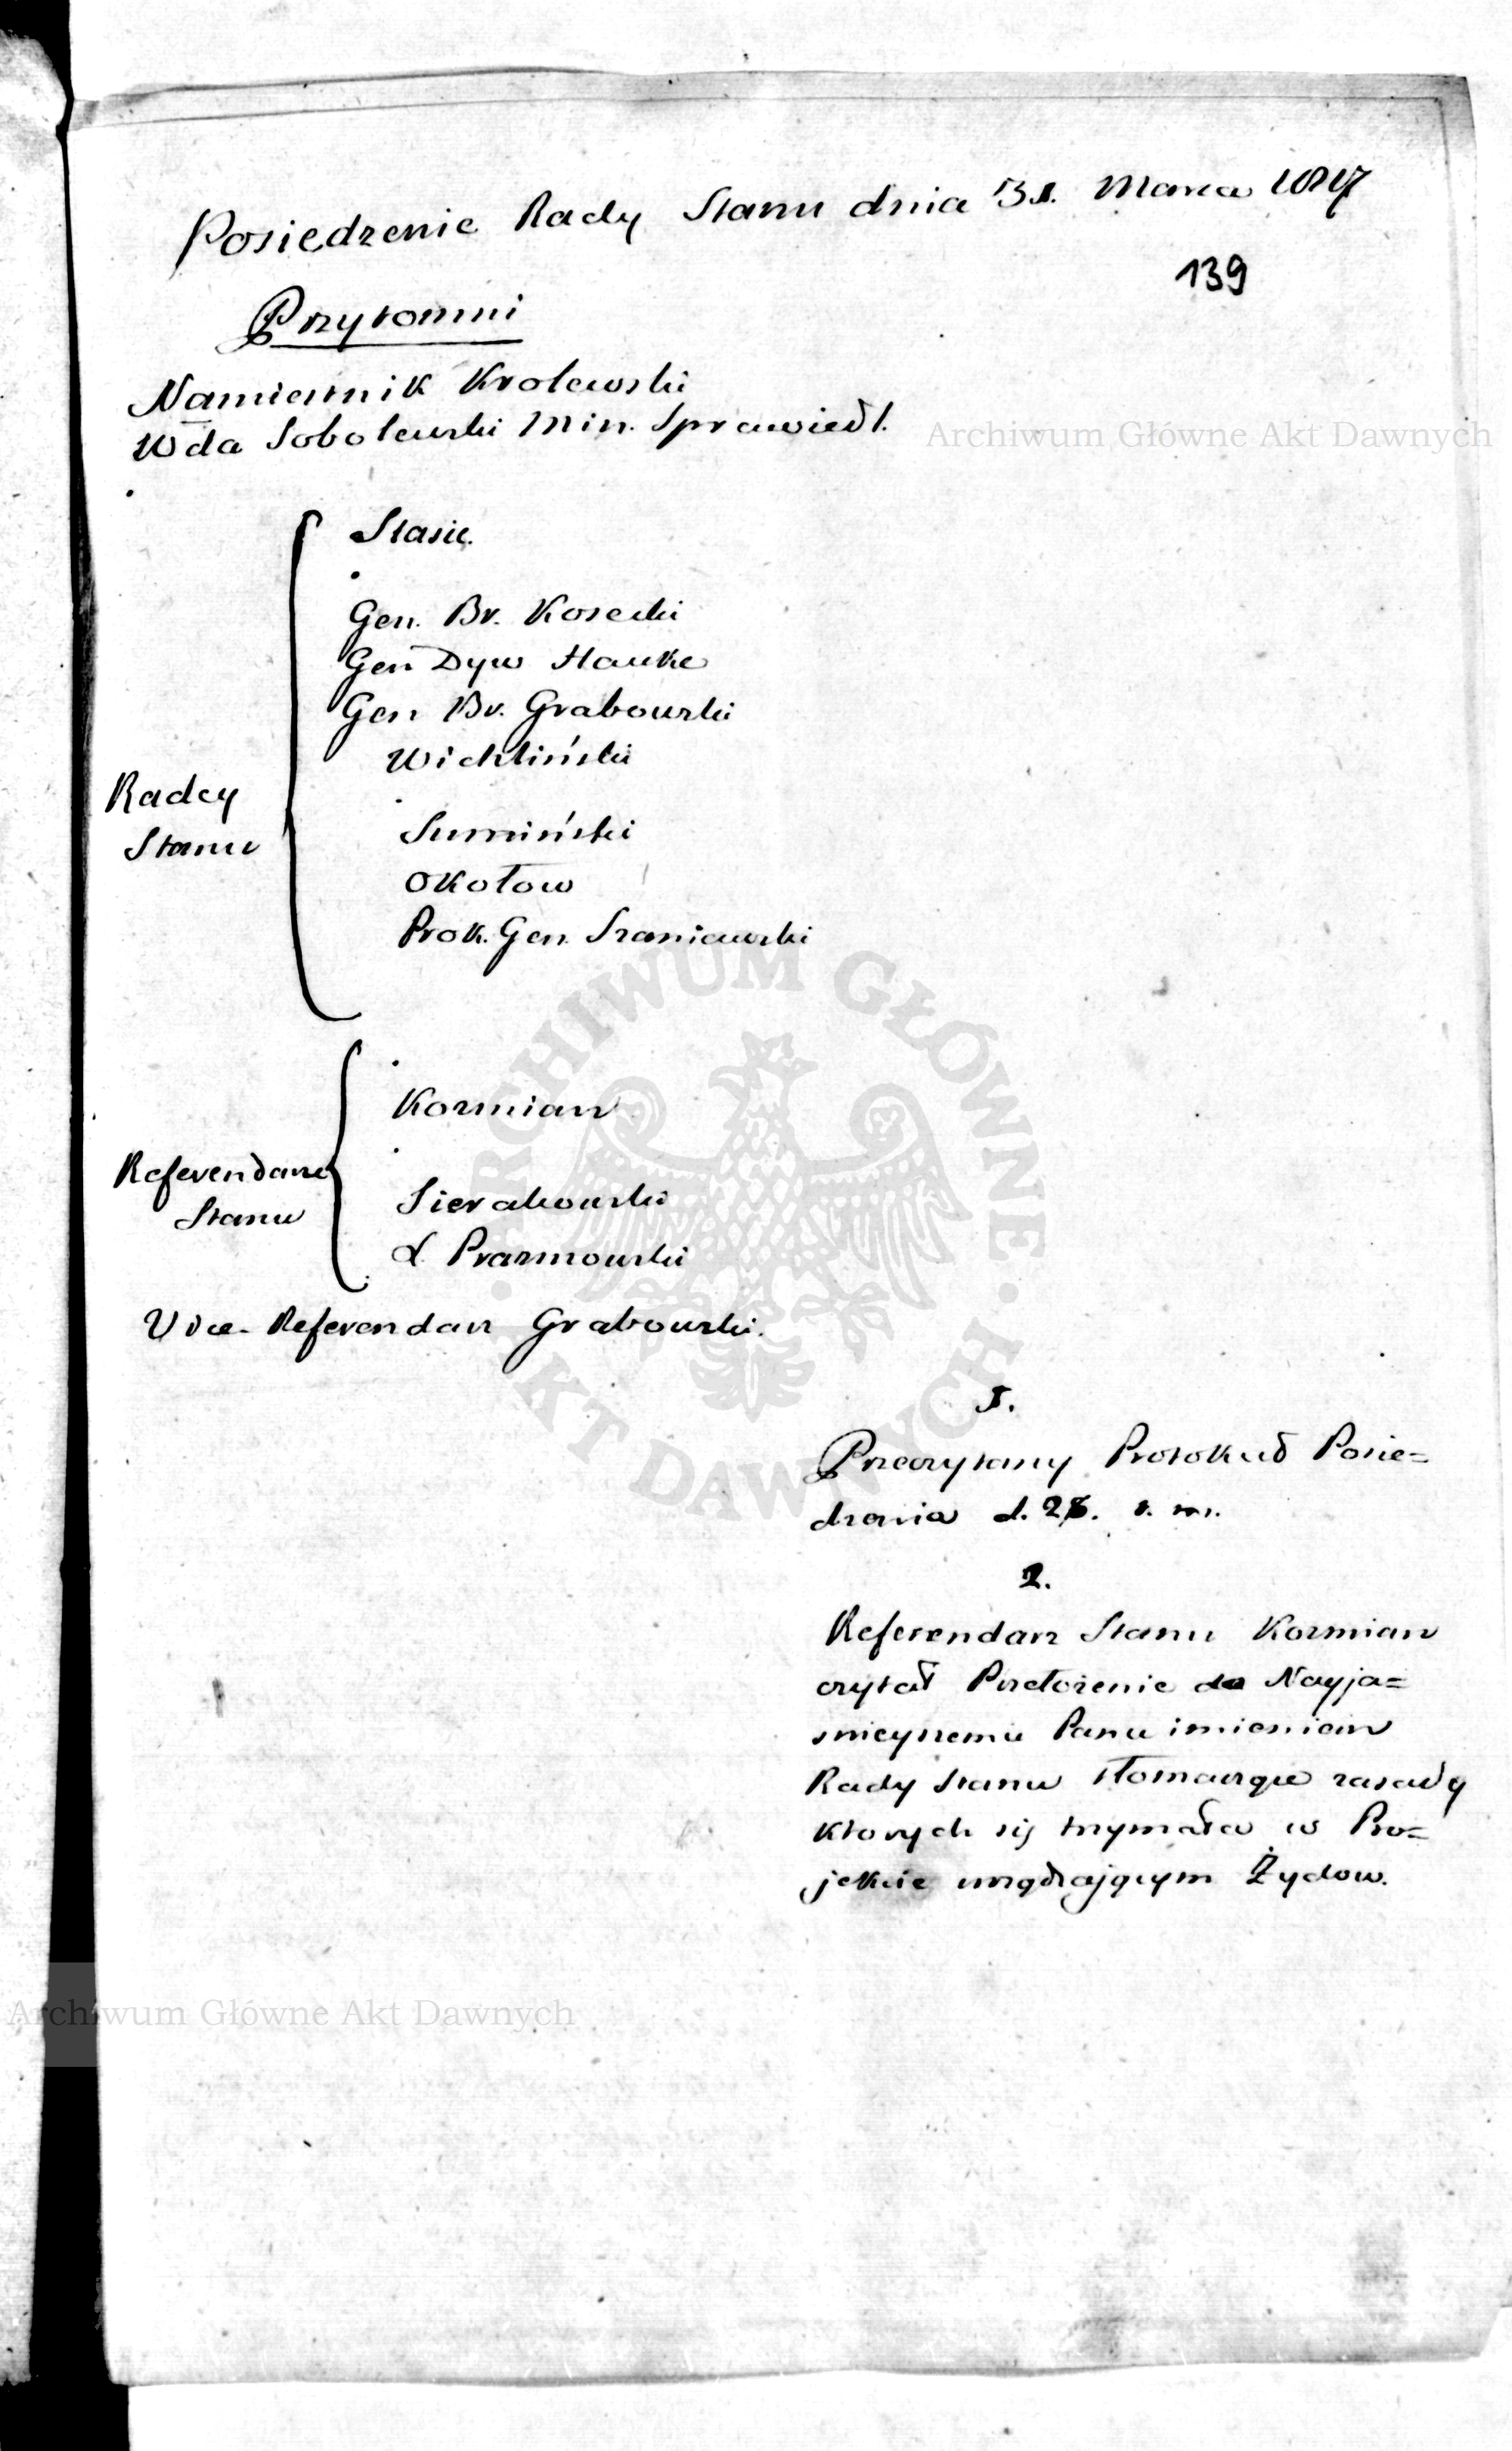 Posiedzenie Rady Stanu dnia 31. Marca 1817
139
Przytomni
Namiestnik Krolewski
Wda Sobolewski Min. Sprawiedl.
Archiwum Główne Akt Dawnych
Radcy
Stanu
Stasic.
Gen. Br. Kosecki
Gen Dyw Hauke
Gen Br. Grabowski
Wichliński
Sumiński
Okołow
Prok. Gen. Szaniawski
Referendarze
Stanu
Kozmian
Sierakowski
X Prazmowski
Vice-Referendarz Grabowski.
ARCHIWUM GŁÓWNE AKT DAWNYCH
1.
Przeczytany Protokuł Posie=
dzenia d. 28. t. m.
2.
Referendarz Stanu Kozmian
czytał Przełożenie Nayja=
snieyszemu Panu imieniem
Rady Stanu tłomaczące zasady
ktorych się trzymała w Pro=
jekcie urządzającym Żydow.
Archiwum Główne Akt Dawnych